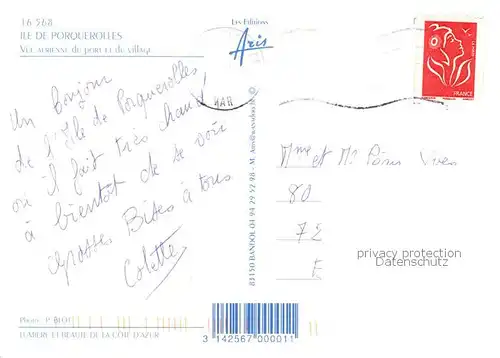 16 568
ILE DE PORQUEROLLES
VUE AERIENNE du PORT et du village
Les Editions
Aris
FRANCE
VAR
Un bonjour
de l'Ile de Porquerolles
où il fait très chaud
à bientôt de se voir
grosses Bises à tous
Colette
83150 BANDOL 04 94 29 52 98 - M.
Mme et Mr
80
75
F
privacy protection
Datenschutz
Photo : P. BLOT
LUMIERE ET BEAUTE DE LA COTE D'AZUR
3 142567 000011